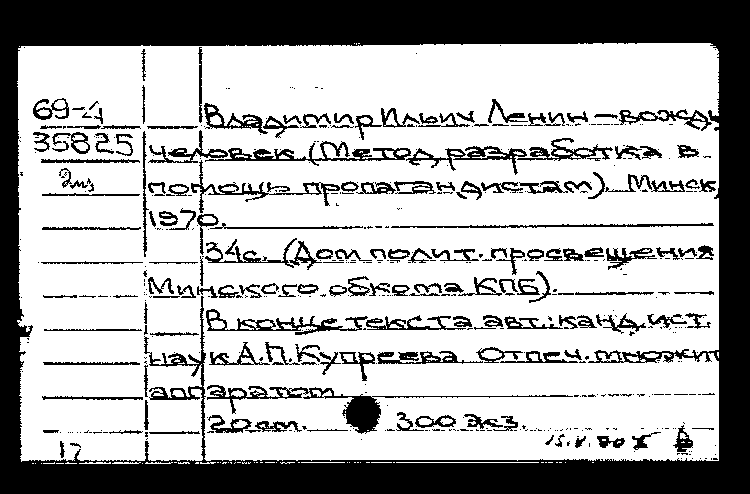 69-4
35825
Владимир Ильич Ленин – вождь,
человек. (Метод. разработка в
помощь пропагандистам). Минск,
1970.
34с. (Дом полит. просвещения
Минского обкома КПБ).
В конце текста авт.: канд. ист.
наук А.П. Купреева. Отпеч. множит.
аппаратом.
20 см. 300 экз.
15.V.70
17